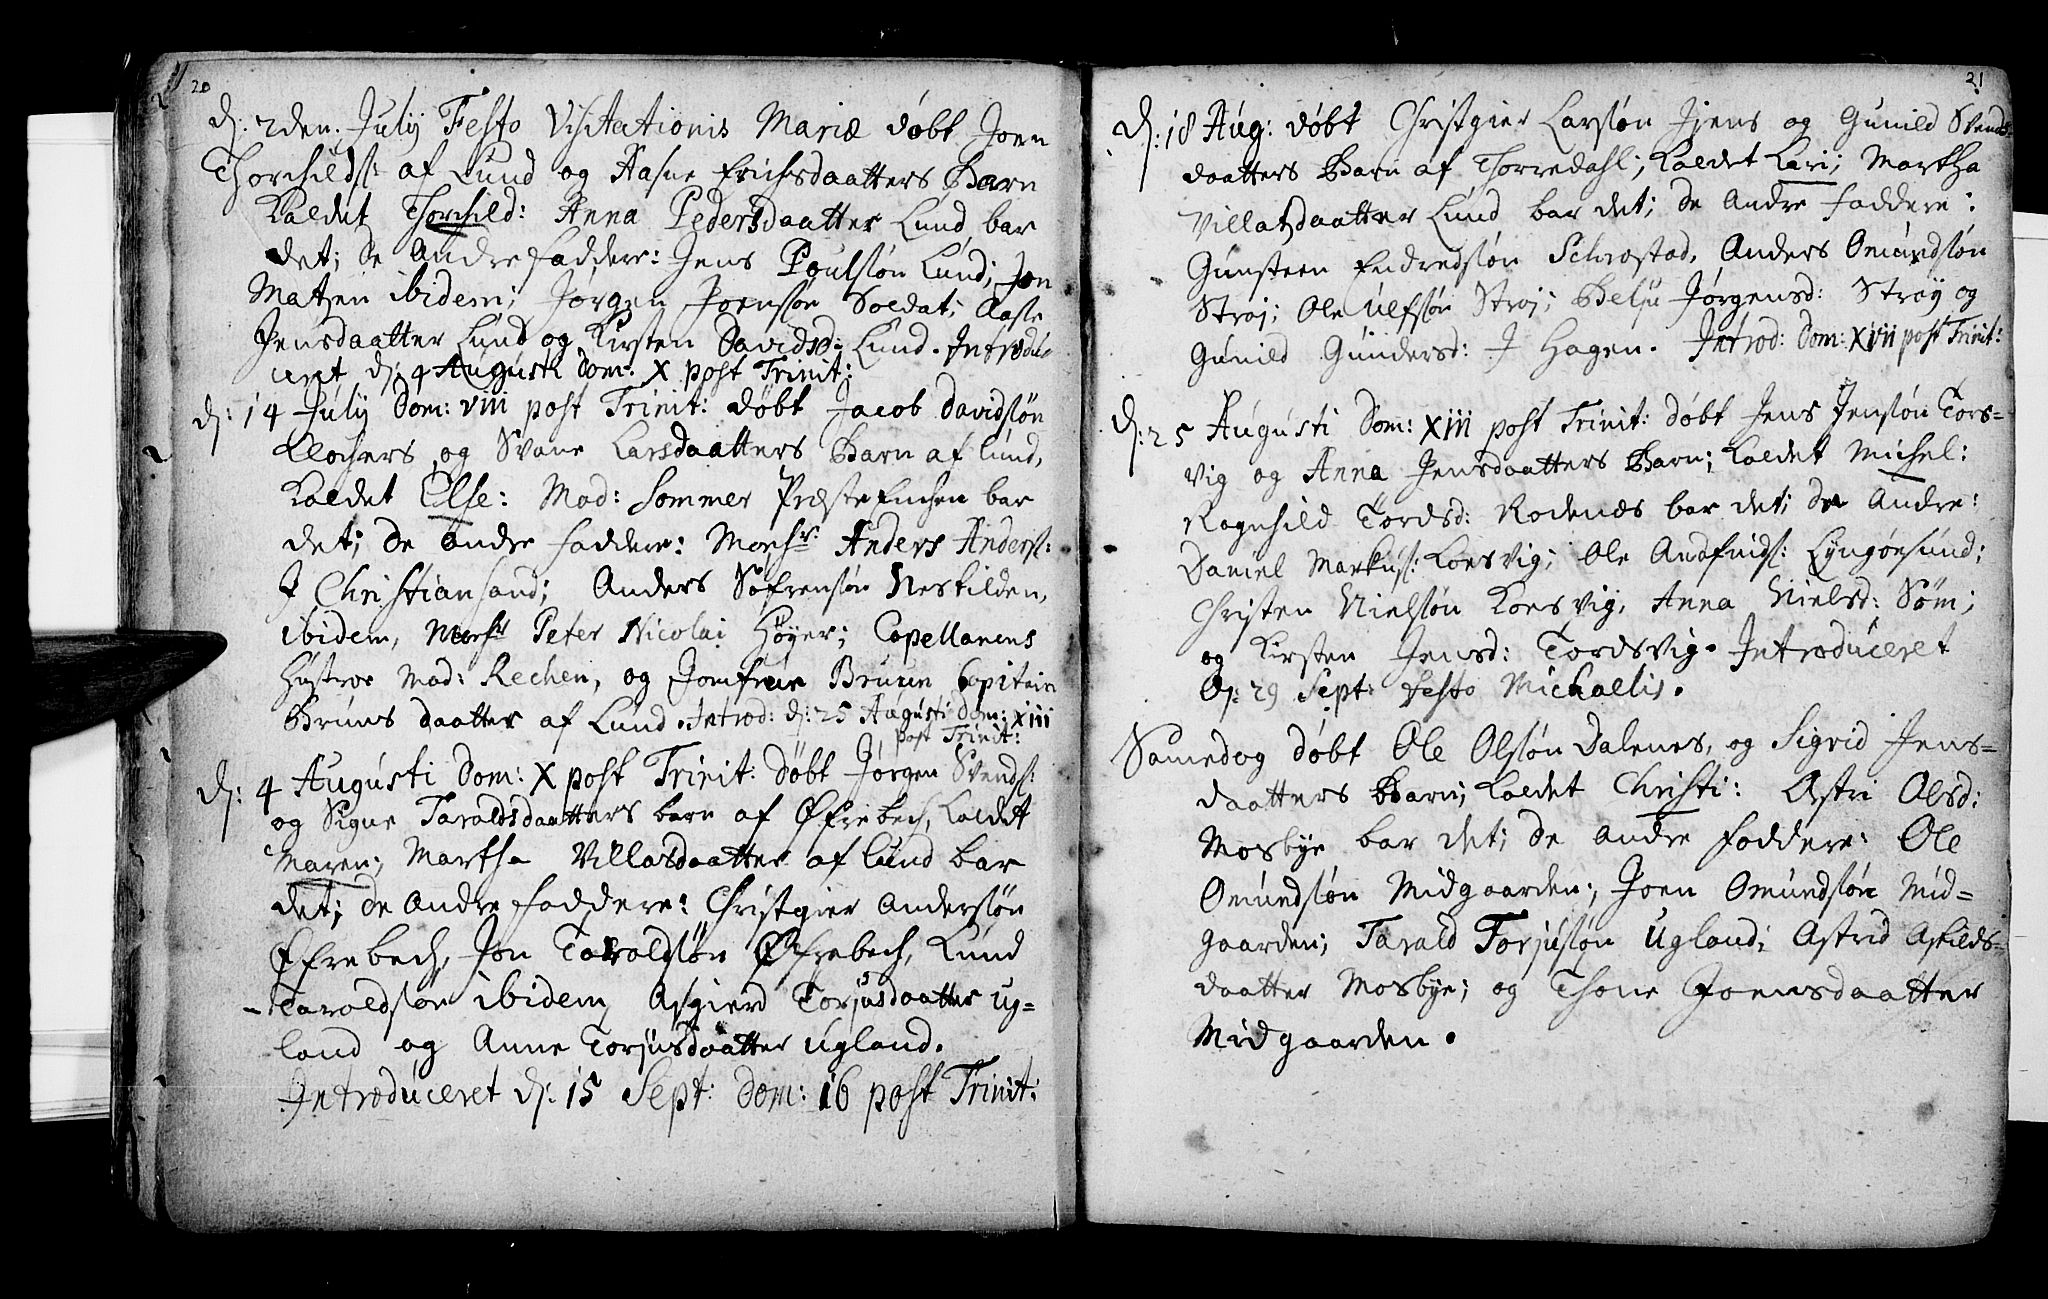 20
d: 2den. July Festo Visitationis Mariæ døbt Joen
Thorchilds: af Lund og Aasne Erichsdaatters Barn
Kaldet Thorchild: Anna Pedersdaatter Lund bar
det; de Andre faddere: Jens Poulsøn Lund; Jon
Matzen ibidem; Jørgen Joensøn Soldat; Aasle
Jensdaatter Lund og Kirsten Davidsd: Lund. Introdu
ceret d: 4 Augusti Dom: X post Trinit:
d: 14 July Dom: VIII post Trinit: døbt Jacob Davidsøn
Klochers og Svane Larsdaatters Barn af Lund,
Kaldet Else: Mad: Sommer Præste Enchen bar
det; de andre faddere: Monsr: Anders Anders:
J Christiansand; Anders Sofrensøn Neskilden,
ibidem, Monsr Peter Nicolai Høyer; Capellanens
Hustroe Mad: Rechen, og Jomfrue Bruun Capitain
Bruns daatter af Lund. Introd: d: 25 Augusti Dom: XIII
post Trinit:
d: 4 Augusti Dom: X post Trinit: døbt Jørgen Svends:
og Signe Taraldsdaatters barn af Øfrebech, Kaldet
Maren; Martha Villasdaatter af Lund bar
det; de Andre faddere: Christgier Andersøn
Øfrebech, Jon Taraldsøn Øfrebech, Lund
Taraldsøn ibidem, Asgierd Torjusdaatter Ug-
land og Anne Torjusdaatter Ugland.
Introduceret d: 15 Sept: Dom: 16 post Trinit:
21
d: 18 Aug: døbt Christgier Larsøn Jjens og Gunild Svends-
daatters Barn af Torredahl; Kaldet Kari; Martha
Villatzdaatter Lund bar det; de Andre faddere:
Gunsteen Endredsøn Schrostad, Anders Omundsøn
Stroj; Ole Ulfsøn Stroj; Belju Jørgensd: Strøy og
Gunild Gundersd: J Hagen. Introd: Dom: XVII post Trinit:
d: 25 Augusti Dom: XIII post Trinit: døbt Jens Jensøn Tors-
vig og Anna Jensdaatters Barn; Kaldet Michel:
Ragnhild Tordsd: Rodenæs bar det; de Andre:
Daniel Markus: Korsvig; Ole Andfinds: Lyngøesund;
Christen Nielsøn Korsvig, Anna Nielsd: Søm;
og Kirsten Jensd: Tordsvig. Introduceret
d: 29 Sept: Festo Michaelis.
Samedag døbt Ole Olsøn Dalenes, og Sigrid Jens-
daatters Barn; Kaldet Christi: Astri Olsd:
Mosbye bar det; de andre Faddere: Ole
Omundsøn Midgaarden; Joen Omundsøn Mid-
gaarden; Tarald Torjusøn Ugland; Astrid Askilds-
daatter Mosbye; og Thone Joensdaatter
Midgaarden.